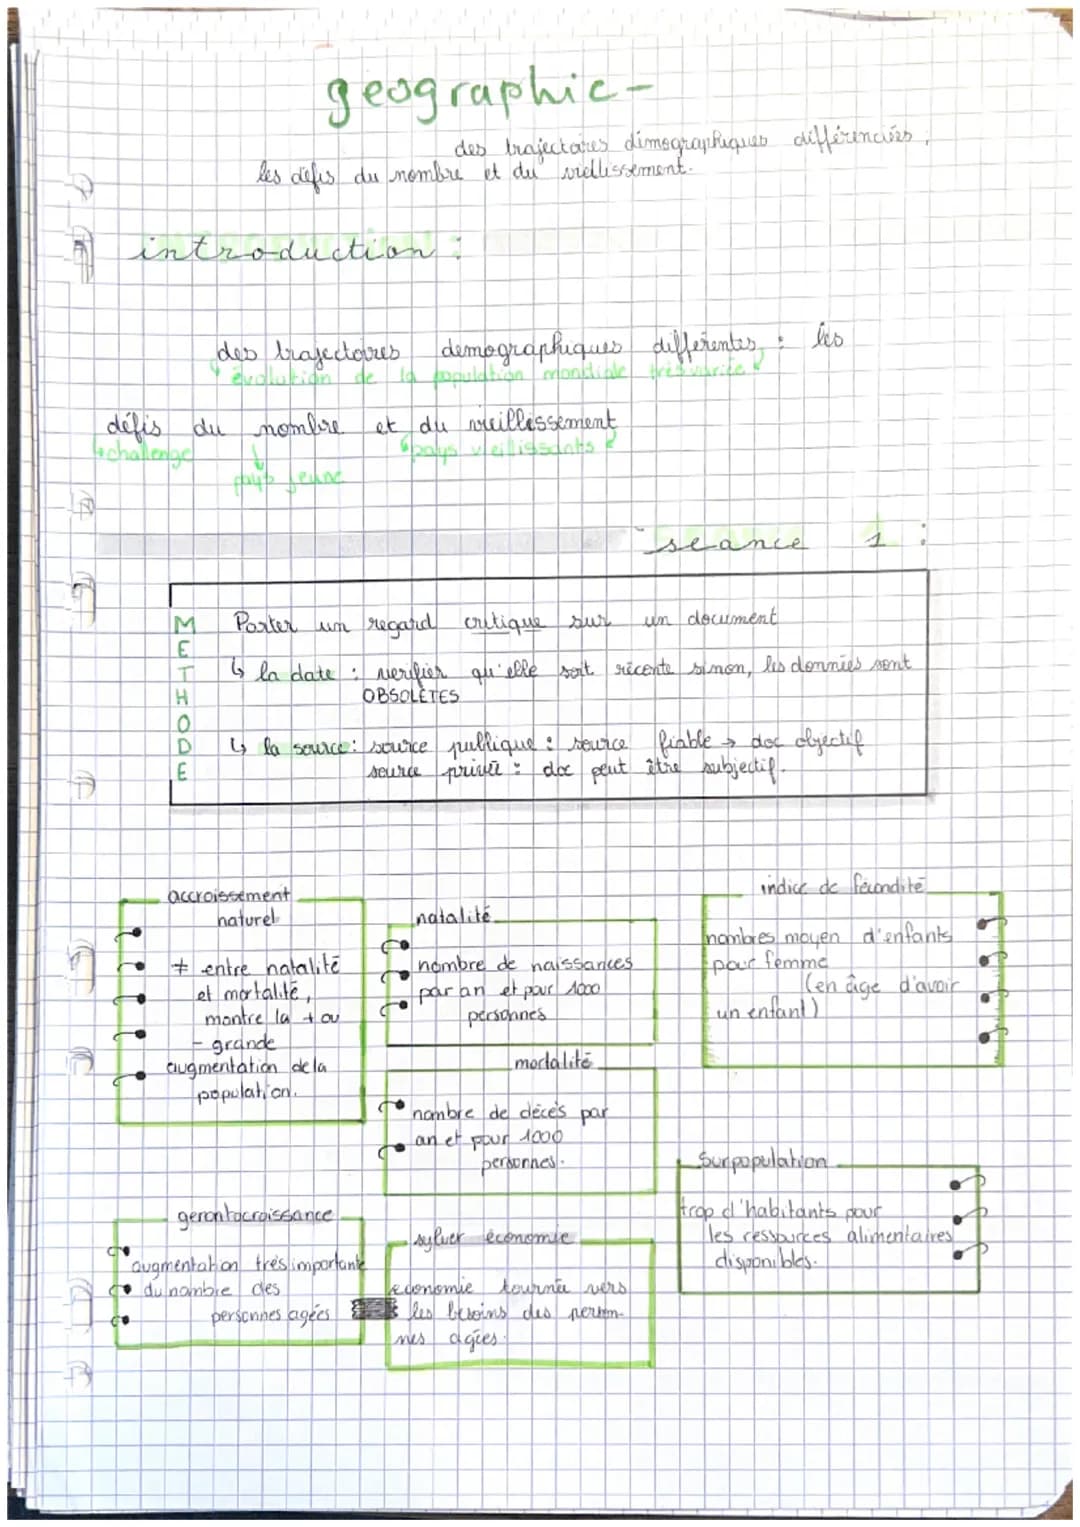 geographie-
des trajectoires démographiques différenciées ;
les défis du nombre et du viellissement.
introduction :
des trajectoires démographiques différentes : les
évolution de la population mondiale très variée
défis du nombre et du vieillissement
↳challenge
pays veillissants
pays jeune
seance 1 :
METHODE
Porter un regard critique sur un document
↳ la date : verifier qu'elle soit récente sinon, les données sont
OBSOLÈTES
↳ la source : source publique : source fiable → doc objectif
source privée : doc peut être subjectif.
accroissement
naturel
≠ entre natalité
et mortalité,
montre la + ou
- grande
augmentation de la
population.
natalité
nombre de naissances
par an et pour 1000
personnes
indice de fécondité
nombres moyen d'enfants
pour femme
(en âge d'avoir
un enfant)
mortalité
nombre de décès par
an et pour 1000
personnes.
surpopulation
trop d'habitants pour
les ressources alimentaires
disponibles.
gerontocroissance
augmentation très importante
du nombre des
personnes agées
sylver économie
economie tournée vers
les besoins des person-
nes agées.